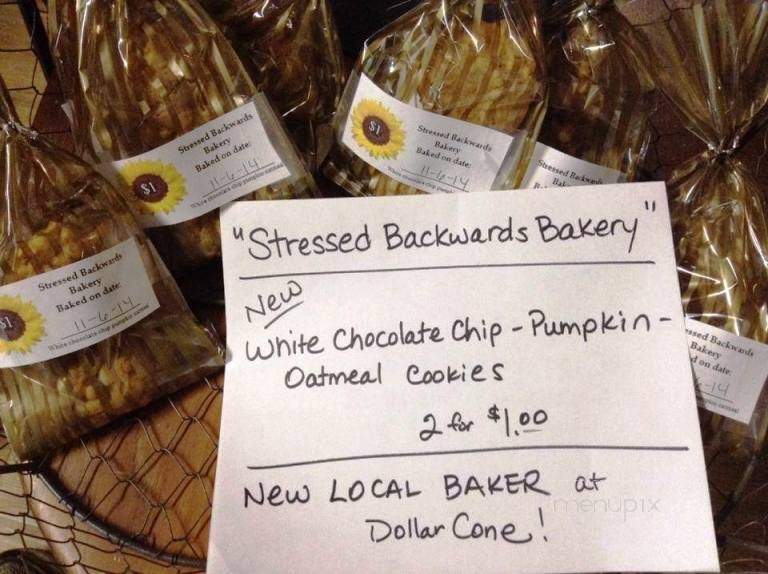 $1
Stressed Backwards
Bakery
Baked on date:
11-6-14
White chocolate chip pumpkin oatmeal
$1
Stressed Backwards
Bakery
Baked on date:
11-6-14
White chocolate chip pumpkin
Stressed Backwards
$1
Stressed Backwards
Bakery
Baked on date:
11-6-14
White chocolate chip pumpkin oatmeal
Bakery
"Stressed Backwards Bakery"
New
White Chocolate Chip - Pumpkin -
Oatmeal Cookies
2 for $1.00
New LOCAL BAKER at
Dollar Cone!
menupix